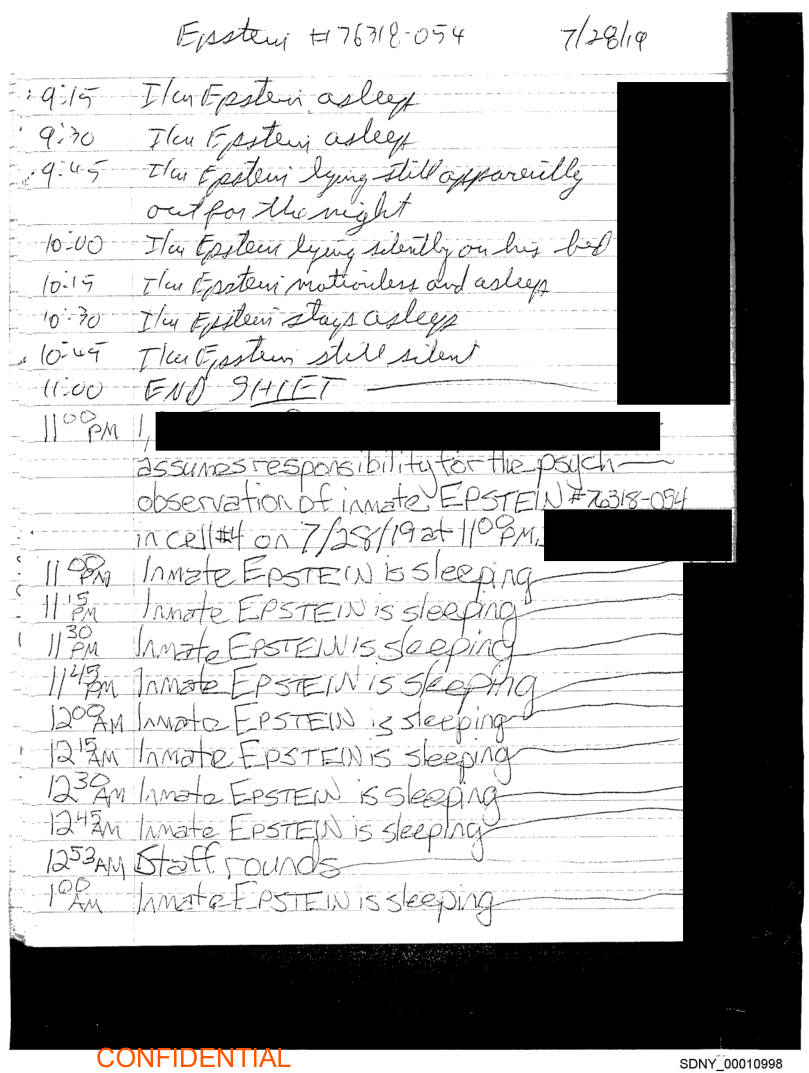 Epstein #76318-054 7/28/19
9:15 I/m Epstein asleep
9:30 I/m Epstein asleep
9:45 I/m Epstein lying still apparently
out for the night
10:00 I/m Epstein lying silently on his bed
10:15 I/m Epstein motionless and asleep
10:30 I/m Epstein stays asleep
10:45 I/m Epstein still silent
11:00 END SHEET
11:00 PM I,
assumes responsibility for the psych
observation of inmate EPSTEIN #76318-054
in cell #4 on 7/28/19 at 11:00 PM.
11:00 PM Inmate EPSTEIN is sleeping
11:15 PM Inmate EPSTEIN is sleeping
11:30 PM Inmate EPSTEIN is sleeping
11:45 PM Inmate EPSTEIN is sleeping
12:00 AM Inmate EPSTEIN is sleeping
12:15 AM Inmate EPSTEIN is sleeping
12:30 AM Inmate EPSTEIN is sleeping
12:45 AM Inmate EPSTEIN is sleeping
12:53 AM Staff rounds
1:00 AM Inmate EPSTEIN is sleeping
CONFIDENTIAL
SDNY_00010998